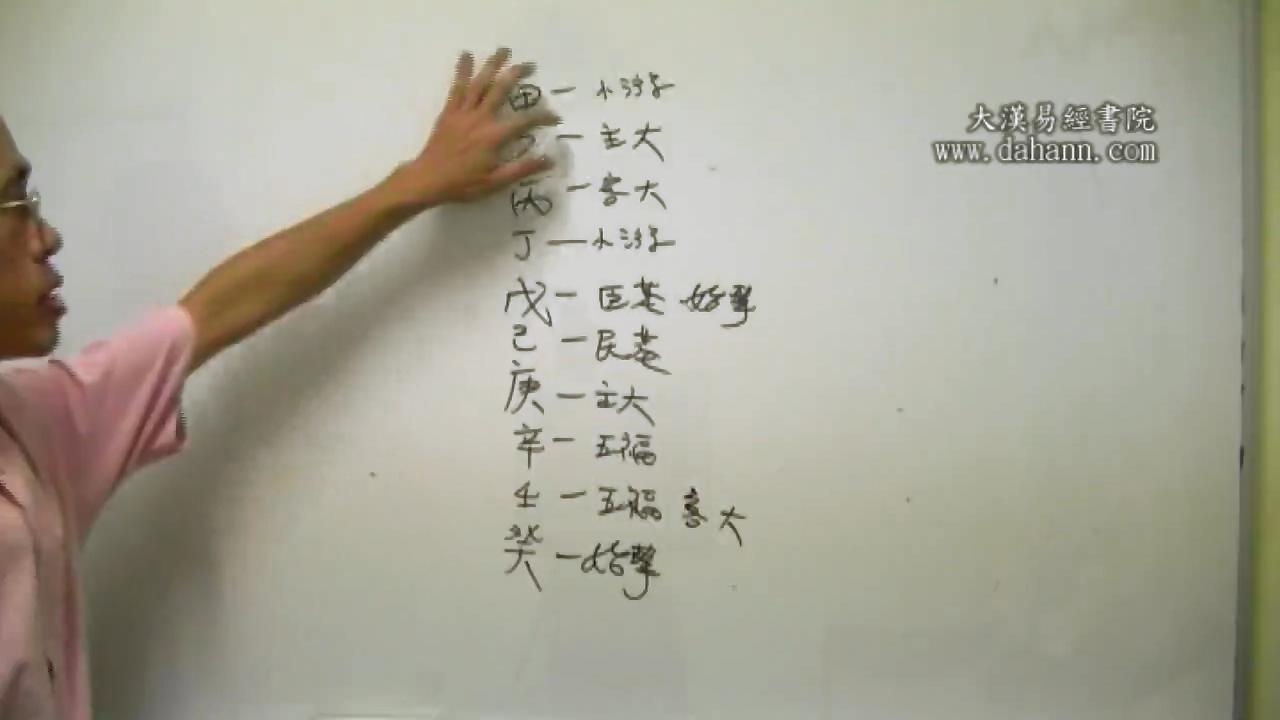 甲一小游
一主大
丙一客大
丁一小游
戊一臣基 始擊
己一民基
庚一主大
辛一五福
壬一五福 客大
癸一始擊
大漢易經書院
www.dahann.com